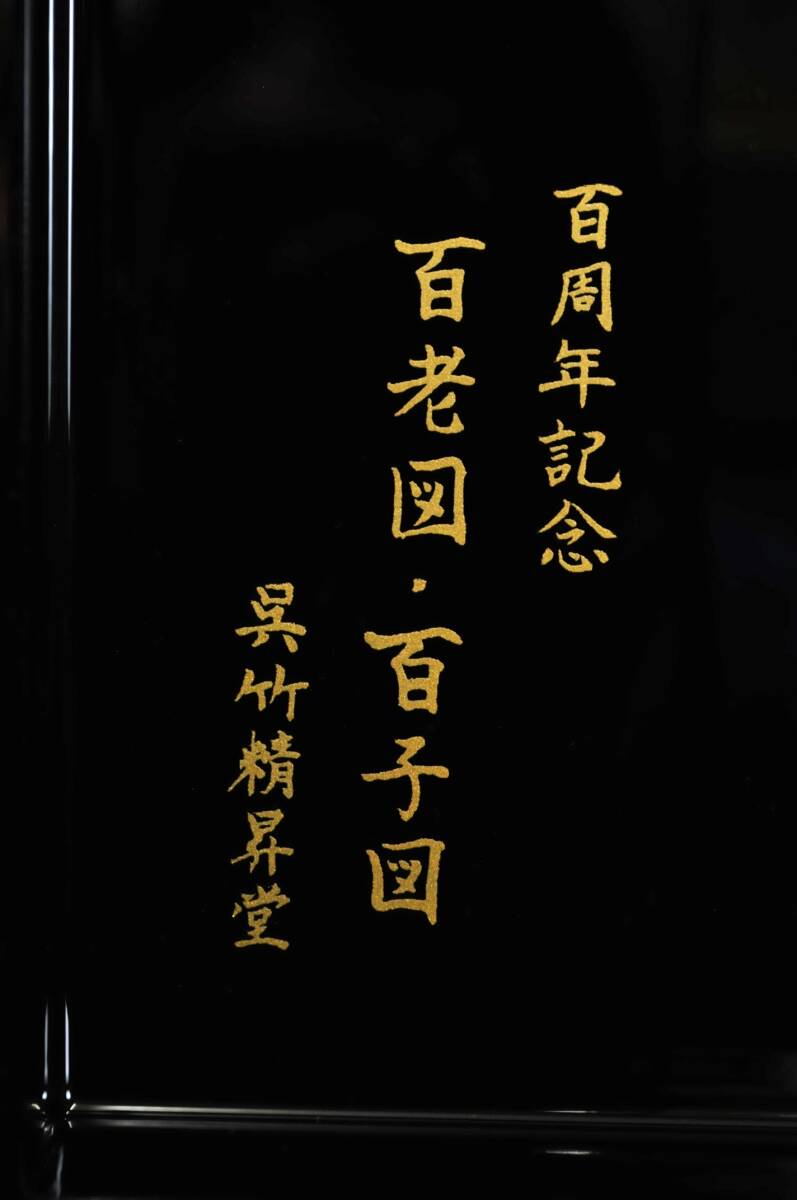 百周年記念
百老図・百子図
呉竹精昇堂